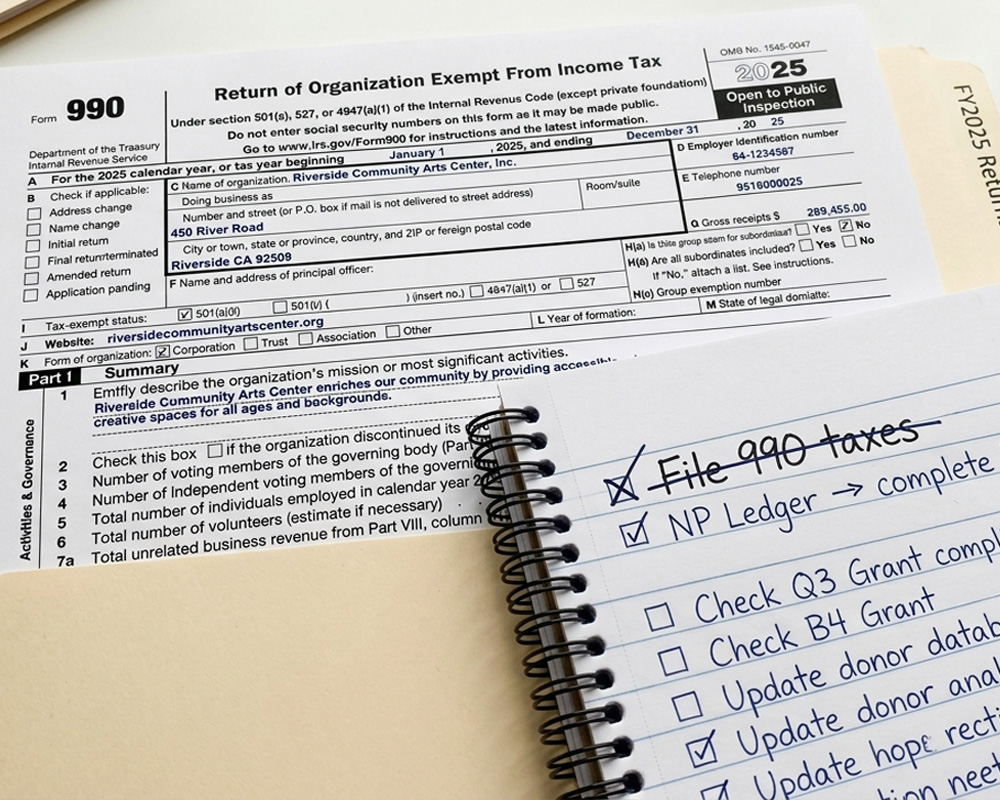 Form 990
Return of Organization Exempt From Income Tax
Under section 501(s), 527, or 4947(a)(1) of the Internal Revenue Code (except private foundation)
Do not enter social security numbers on this form as it may be made public.
Go to www.lrs.gov/Form900 for instructions and the latest information.
Department of the Treasury
Internal Revenue Service
OMB No. 1545-0047
2025
Open to Public
Inspection
A For the 2025 calendar year, or tas year beginning January 1 , 2025, and ending December 31 , 20 25
B Check if applicable:
Address change
Name change
Initial return
Final return
Amended return
Application pending
C Name of organization. Riverside Community Arts Center, Inc.
Doing business as
Number and street (or P.O. box if mail is not delivered to street address)
Room/suite
450 River Road
City or town, state or province, country, and 2IP or foreign postal code
Riverside CA 92509
D Employer Identification number
64-1234567
E Telephone number
9516000025
G Gross receipts $ 289,455.00
F Name and address of principal officer:
H(a) Is this group for Yes No
Are all subordinates included? Yes No
If "No," attach a list. See instructions.
Group exemption number
I Tax-exempt status: ) (insert no.) or 527
J Website: riversidecommunityartscenter.org
K Form of organization: Corporation Trust Association Other
L Year of formation:
M State of legal
Part 1 Summary
Activities & Governance
1 Emtfly describe the organization's mission or most significant activities.
Riverelde Community Arts Center enriches our community by providing
creative spaces for all ages and backgrounds.
2 Check this box if the organization discontinued its
3 Number of voting members of the governing body (Par
4 Number of Independent voting members of the
5 Total number of individuals employed in calendar year
6 Total number of volunteers (estimate if necessary)
7a Total unrelated business revenue from Part VIII, column
FY2025 Return
File 990 taxes
NP Ledger → complete
Check Q3 Grant compl
Check B4 Grant
Update donor datab
Update donor anal
Update hope recti
neet